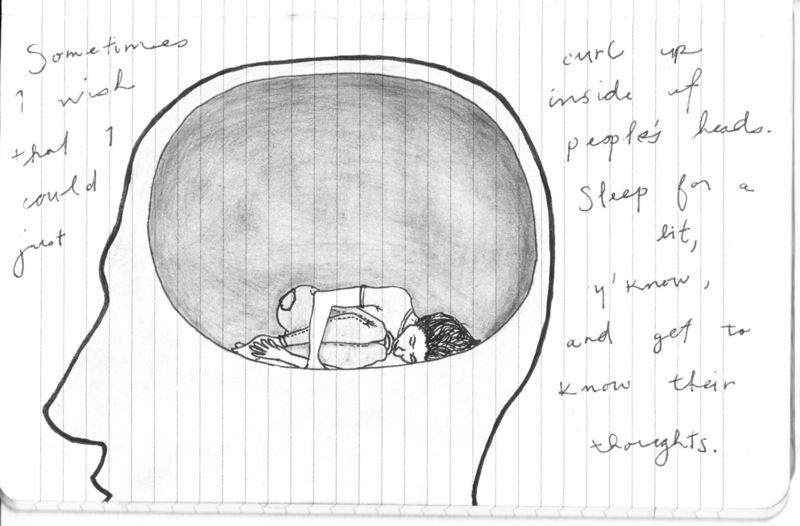 Sometimes
I wish
that I
could
just
curl up
inside of
people's heads.
Sleep for a
bit,
y'know,
and get to
know their
thoughts.